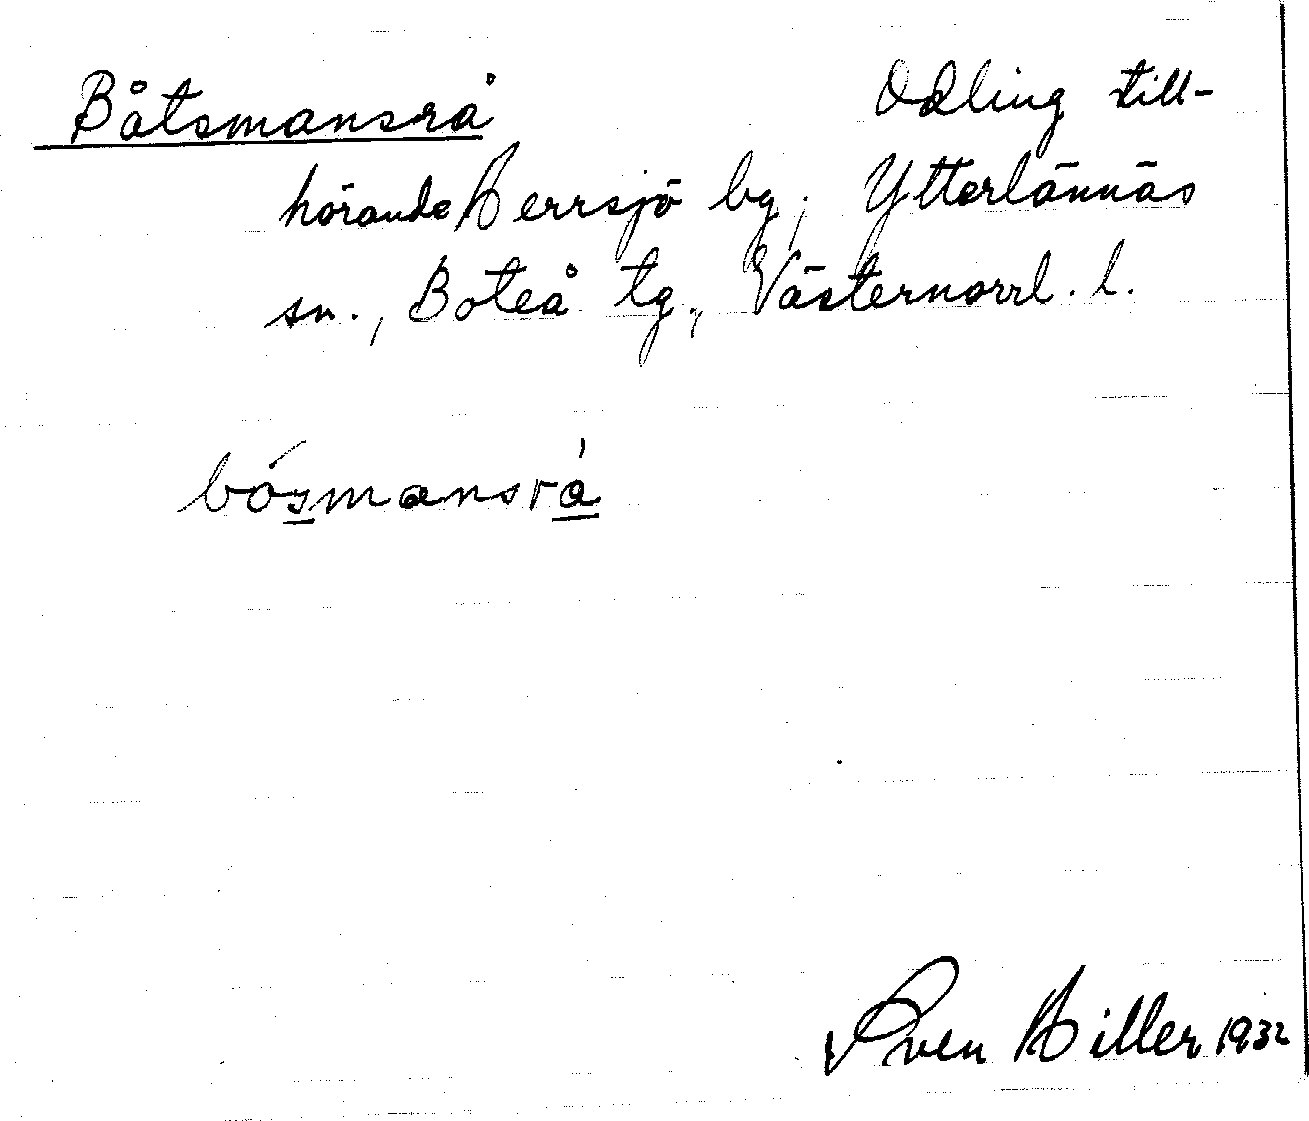 Båtsmansrå Odling till-
hörande Herrsjö by, Ytterlännäs
sn., Boteå tg., Västernorrl. l.
bósmansrǻ
Sven Hiller 1932